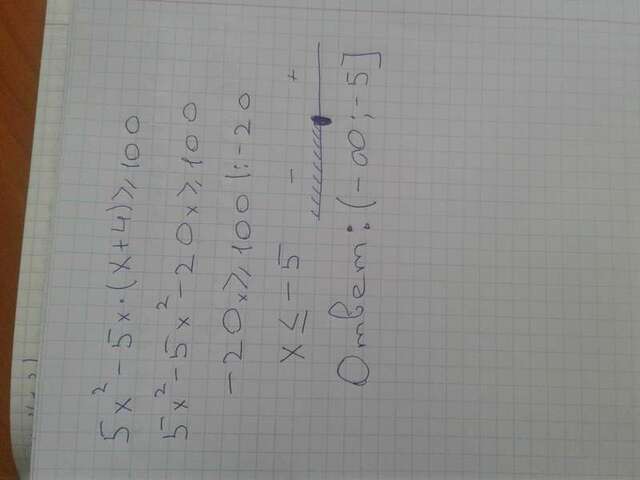 5x² - 5x·(x+4) ⩾ 100
5x² - 5x² - 20x ⩾ 100
-20x ⩾ 100 |:-20
x ≤ -5
- +
Ответ: (-∞;-5]